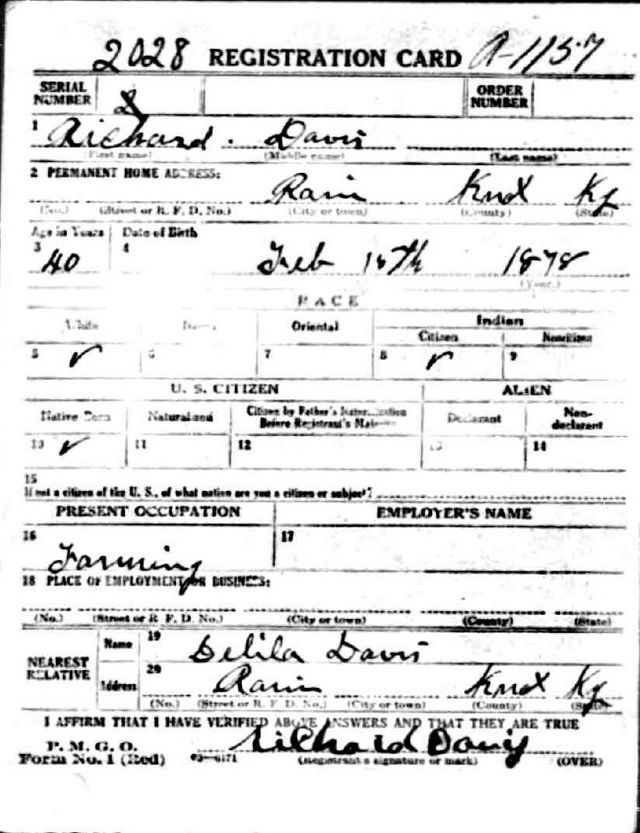 2028 REGISTRATION CARD A-1157
SERIAL NUMBER 2 ORDER NUMBER
1 Richard Davis
(First name) (Middle name) (Last name)
2 PERMANENT HOME ADDRESS:
Rain Knox Ky
(No.) (Street or R. F. D. No.) (City or town) (County) (State)
Age in Years Date of Birth
3 40 4 Feb 18th 1878
(Year.)
RACE
White Negro Oriental Indian
Citizen Noncitizen
5 ✓ 6 7 8 ✓ 9
U. S. CITIZEN ALIEN
Native Born Naturalized Citizen by Father's Naturalization Before Registrant's Majority Declarant Non-declarant
10 ✓ 11 12 13 14
15
If not a citizen of the U. S., of what nation are you a citizen or subject?
PRESENT OCCUPATION EMPLOYER'S NAME
16 Farming 17
18 PLACE OF EMPLOYMENT OR BUSINESS:
(No.) (Street or R. F. D. No.) (City or town) (County) (State)
NEAREST RELATIVE Name 19 Delila Davis
Address 20 Rain Knox Ky
(No.) (Street or R. F. D. No.) (City or town) (County) (State)
I AFFIRM THAT I HAVE VERIFIED ABOVE ANSWERS AND THAT THEY ARE TRUE
P. M. G. O.
Form No. 1 (Red) 03-6171 Richard Davis
(Registrant's signature or mark) (OVER)